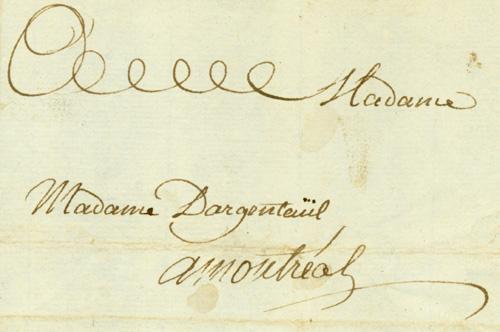 A Madame
Madame Dargenteüil
amontréal